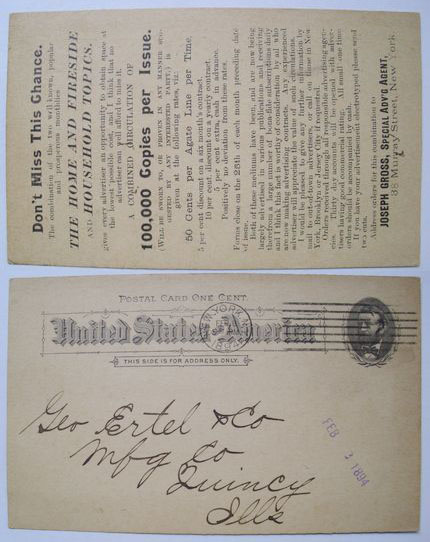 Don't Miss This Chance.
The combination of the two well known, popular
and prosperous monthlies
THE HOME AND FIRESIDE
AND HOUSEHOLD TOPICS,
gives every advertiser an opportunity to obtain space at
the lowest possible rate, and I think that no
advertiser can well afford to miss it.
A COMBINED CIRCULATION OF
100,000 Copies per Issue.
(WILL BE SWORN TO, OR PROVEN IN ANY MANNER SUG-
GESTED BY ANY INTERESTED PARTY) is
given at the following rates, viz:
50 Cents per Agate Line per Time,
5 per cent discount on a 6 months contract.
10 per cent discount on a yearly contract.
5 per cent extra, cash in advance.
Positively no deviation from these rates.
Forms close on the 26th of each month preceding date
of issue.
Both of these mediums have been, and are now being
largely advertised in various publications and receiving
therefrom a large number of bona-fide subscriptions daily
and I think this fact is worthy of consideration by all who
are now making advertising contracts. Any experienced
advertiser will appreciate the value of these circulations.
I would be pleased to give any further information by
mail to out-of-town advertisers or call on those in New
York, Brooklyn or Jersey City if requested.
Orders received through all responsible advertising agen-
cies. Thirty day accounts will be opened with adver-
tisers having good commercial rating. All small one time
orders should be accompanied by cash.
If you have your advertisement electrotyped please send
two cuts.
Address orders for this combination to
JOSEPH GROSS, SPECIAL ADV'G AGENT,
38 Murray Street, New York.
POSTAL CARD ONE CENT.
United States of America
THIS SIDE IS FOR ADDRESS ONLY.
NEW YORK
Geo Ertel & Co
Mfg Co
Quincy
Ills
FEB 3 1894